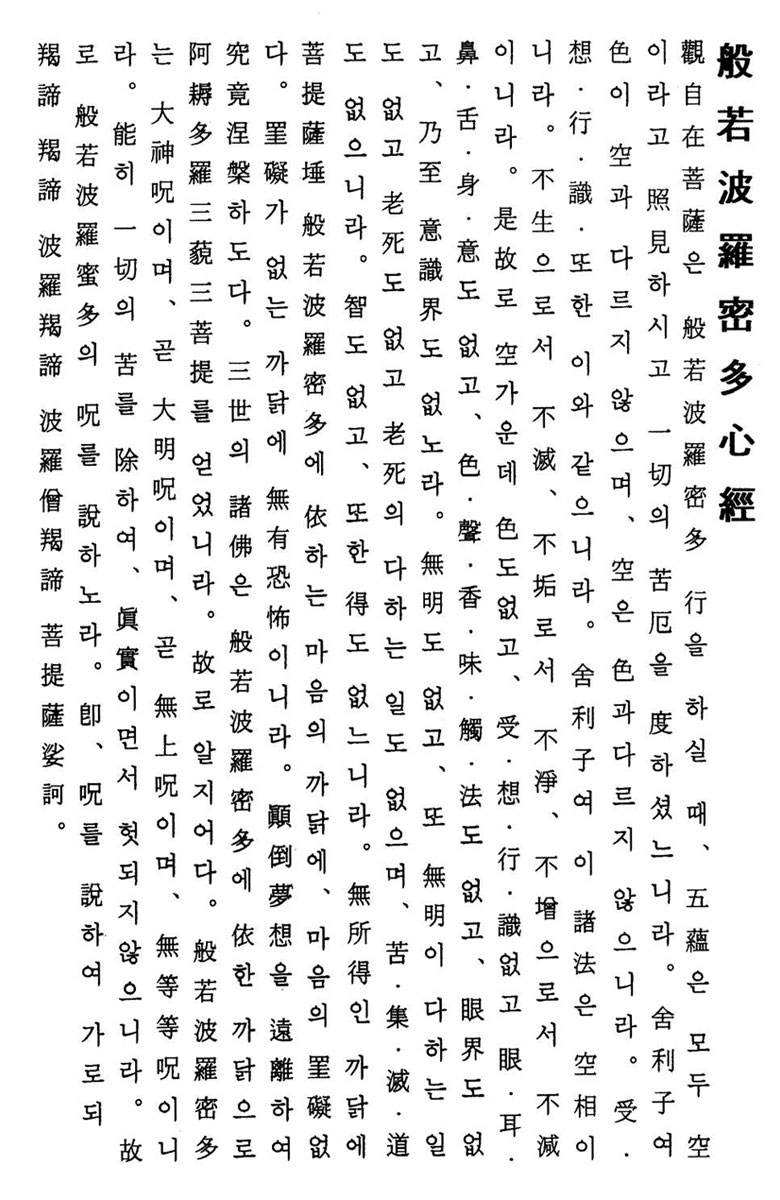 般若波羅密多心經
觀自在菩薩은 般若波羅密多 行을 하실 때、五蘊은 모두 空
이라고 照見하시고 一切의 苦厄을 度하셨느니라。舍利子여
色이 空과 다르지 않으며、空은 色과다르지 않으니라。受·
想·行·識·또한 이와 같으니라。舍利子여 이 諸法은 空相이
니라。不生으로서 不滅、不垢로서 不淨、不增으로서 不減
이니라。是故로 空가운데 色도없고、受·想·行·識없고 眼·耳·
鼻·舌·身·意도 없고、色·聲·香·味·觸·法도 없고、眼界도 없
고、乃至 意識界도 없노라。無明도 없고、또 無明이 다하는 일
도 없고 老死도 없고 老死의 다하는 일도 없으며、苦·集·滅·道
도 없으니라。智도 없고、또한 得도 없느니라。無所得인 까닭에
菩提薩埵 般若波羅密多에 依하는 마음의 까닭에、마음의 罣礙없
다。罣礙가 없는 까닭에 無有恐怖이니라。顚倒夢想을 遠離하여
究竟涅槃하도다。三世의 諸佛은 般若波羅密多에 依한 까닭으로
阿耨多羅三藐三菩提를 얻었니라。故로 알지어다。般若波羅密多
는 大神呪이며、곧 大明呪이며、곧 無上呪이며、無等等呪이니
라。能히 一切의 苦를 除하여、眞實이면서 헛되지않으니라。故
로 般若波羅蜜多의 呪를 說하노라。卽、呪를 說하여 가로되
羯諦 羯諦 波羅羯諦 波羅僧羯諦 菩提薩娑訶。